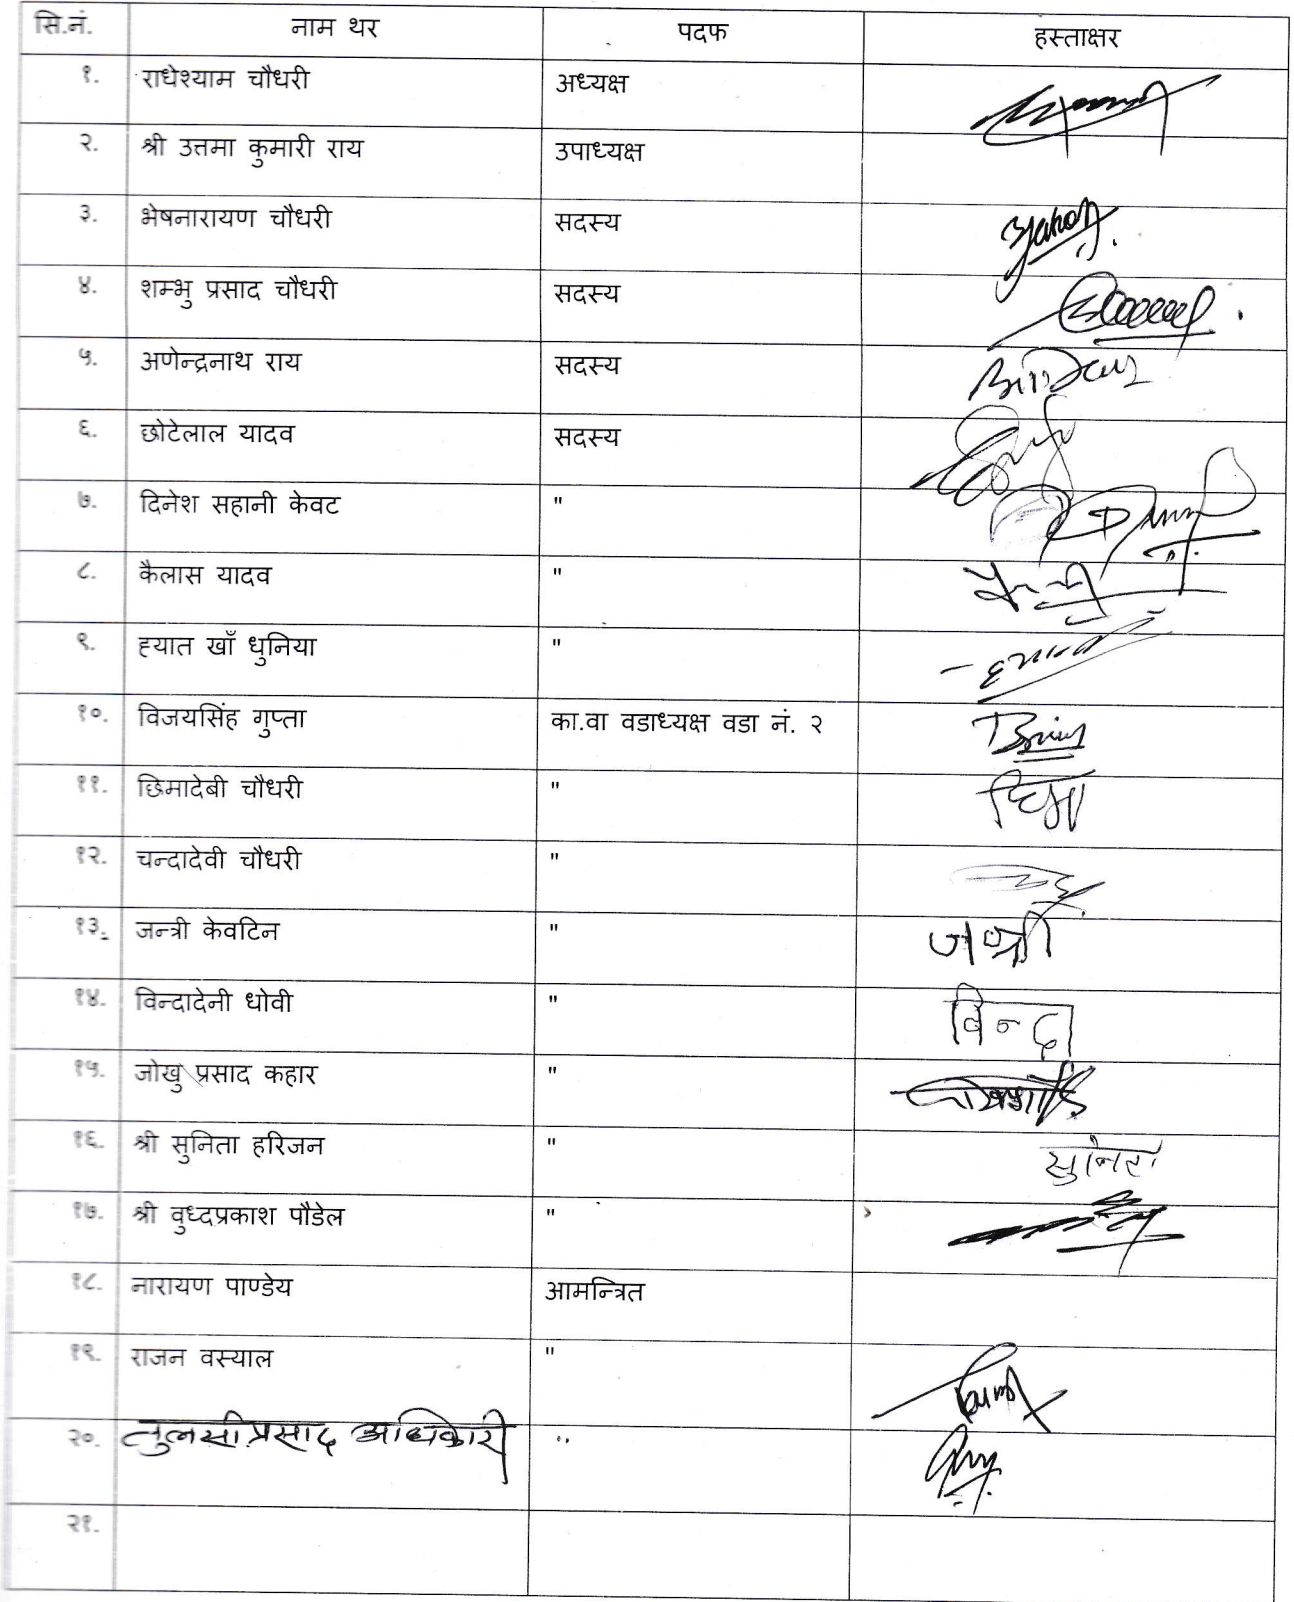 सि.नं. नाम थर पदफ हस्ताक्षर
१. राधेश्याम चौधरी अध्यक्ष
२. श्री उत्तमा कुमारी राय उपाध्यक्ष
३. भेषनारायण चौधरी सदस्य
४. शम्भु प्रसाद चौधरी सदस्य
५. अणेन्द्रनाथ राय सदस्य
६. छोटेलाल यादव सदस्य
७. दिनेश सहानी केवट "
८. कैलास यादव "
९. ह्यात खाँ धुनिया "
१०. विजयसिंह गुप्ता का.वा वडाध्यक्ष वडा नं. २
११. छिमादेबी चौधरी "
१२. चन्दादेवी चौधरी "
१३. जन्त्री केवटिन " जन्त्री
१४. विन्दादेनी धोवी " विन्दा
१५. जोखु प्रसाद कहार "
१६. श्री सुनिता हरिजन " सुनिता
१७. श्री वुध्दप्रकाश पौडेल "
१८. नारायण पाण्डेय आमन्त्रित
१९. राजन वस्याल "
२०. तुलसीप्रसाद अधिकारी "
२१.